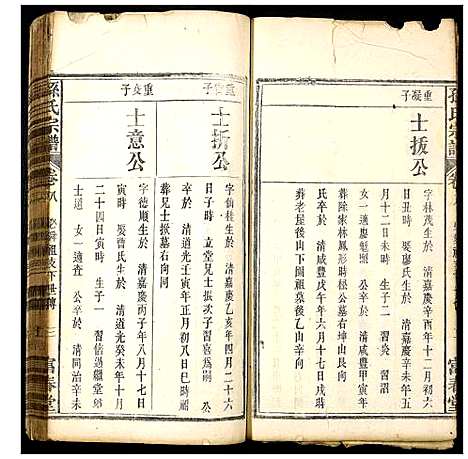 孫氏宗譜
重凝子
士拔公
字林茂生於 清嘉慶辛酉年十二月初
日丑時 娶廖氏生於 清嘉慶辛未年
月十二日未時 生子二
女一適慶魁 公卒於 清咸豐甲寅年
葬除家林鳳形時相公墓右坤山艮向
公卒於 清咸豐戊午年七月十七日戌時
葬老屋後山下面祖墓後乙山辛向
士振公
字仙桂生於 清嘉慶乙亥年四月二十六
日子時 立堂兄士振次子習宮為嗣 公
卒於 清道光壬寅年正月初八日巳時
葬兄士振墓右向同
重文子
士意公
字德順生於 清嘉慶丙子年八月十七日
寅時 娶曹氏生於 清道光癸未年十月
二十四日寅時 生子一 習過繼堂
士道 女一適查 公卒於 清同治辛未
孫氏宗譜
卷八
富春堂
富春堂